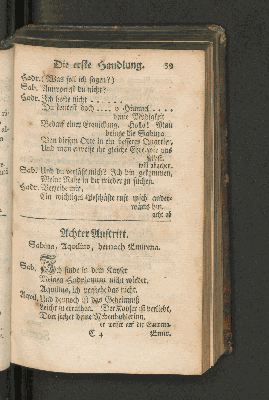 Die erste Handlung. 39
Hadr. (Was soll ich sagen?)
Sab. Antwortst du nicht?
Hadr. Ich heiße nicht . . . . . .
Du kennest doch . . . . o Himmel . . . .
ohne Blödigkeit
Bedarf einer Erquickung. Hola! Man
bringe die Sabina
Von diesem Orte in ein besseres Quartier,
Und man erweise ihr gleiche Ehre wie uns
selbst.
will abgehen.
Sab. Und du verläßt mich? Ich bin gekommen,
Meine Ruhe in dir wieder zu suchen.
Hadr. Verzeihe mir,
Ein wichtiges Geschäffte ruft mich ander-
wärts hin.
geht ab
Achter Auftritt.
Sabina, Aquilino, hernach Emirena.
Sab. Ich finde in dem Kayser
Meinen Hadrianum nicht wieder.
Aquilino, ich verstehe das nicht.
Aquil. Und dennoch ist das Geheimniß
Leicht zu errathen. Der Kayser ist verliebt,
Dort siehest deine Nebenbuhlerinn,
er weiset auf die Emirena.
C 4 Emir.